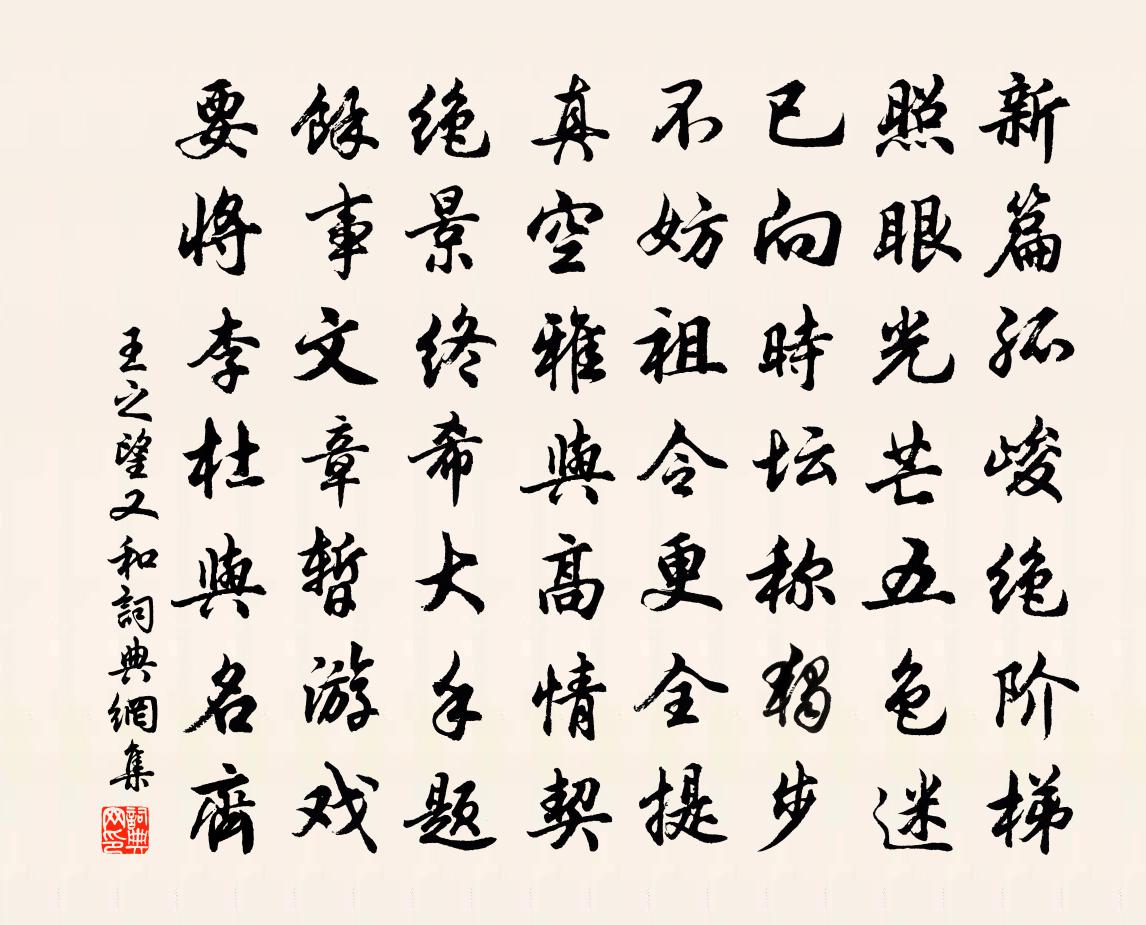 新篇孤峻绝阶梯
照眼光芒五色迷
已向時坛称独步
不妨祖令更全提
真空雅與高情契
绝景终希大手题
餘事文章暫游戏
要将李杜與名齊
王之望又和詞典網集
詞典网印